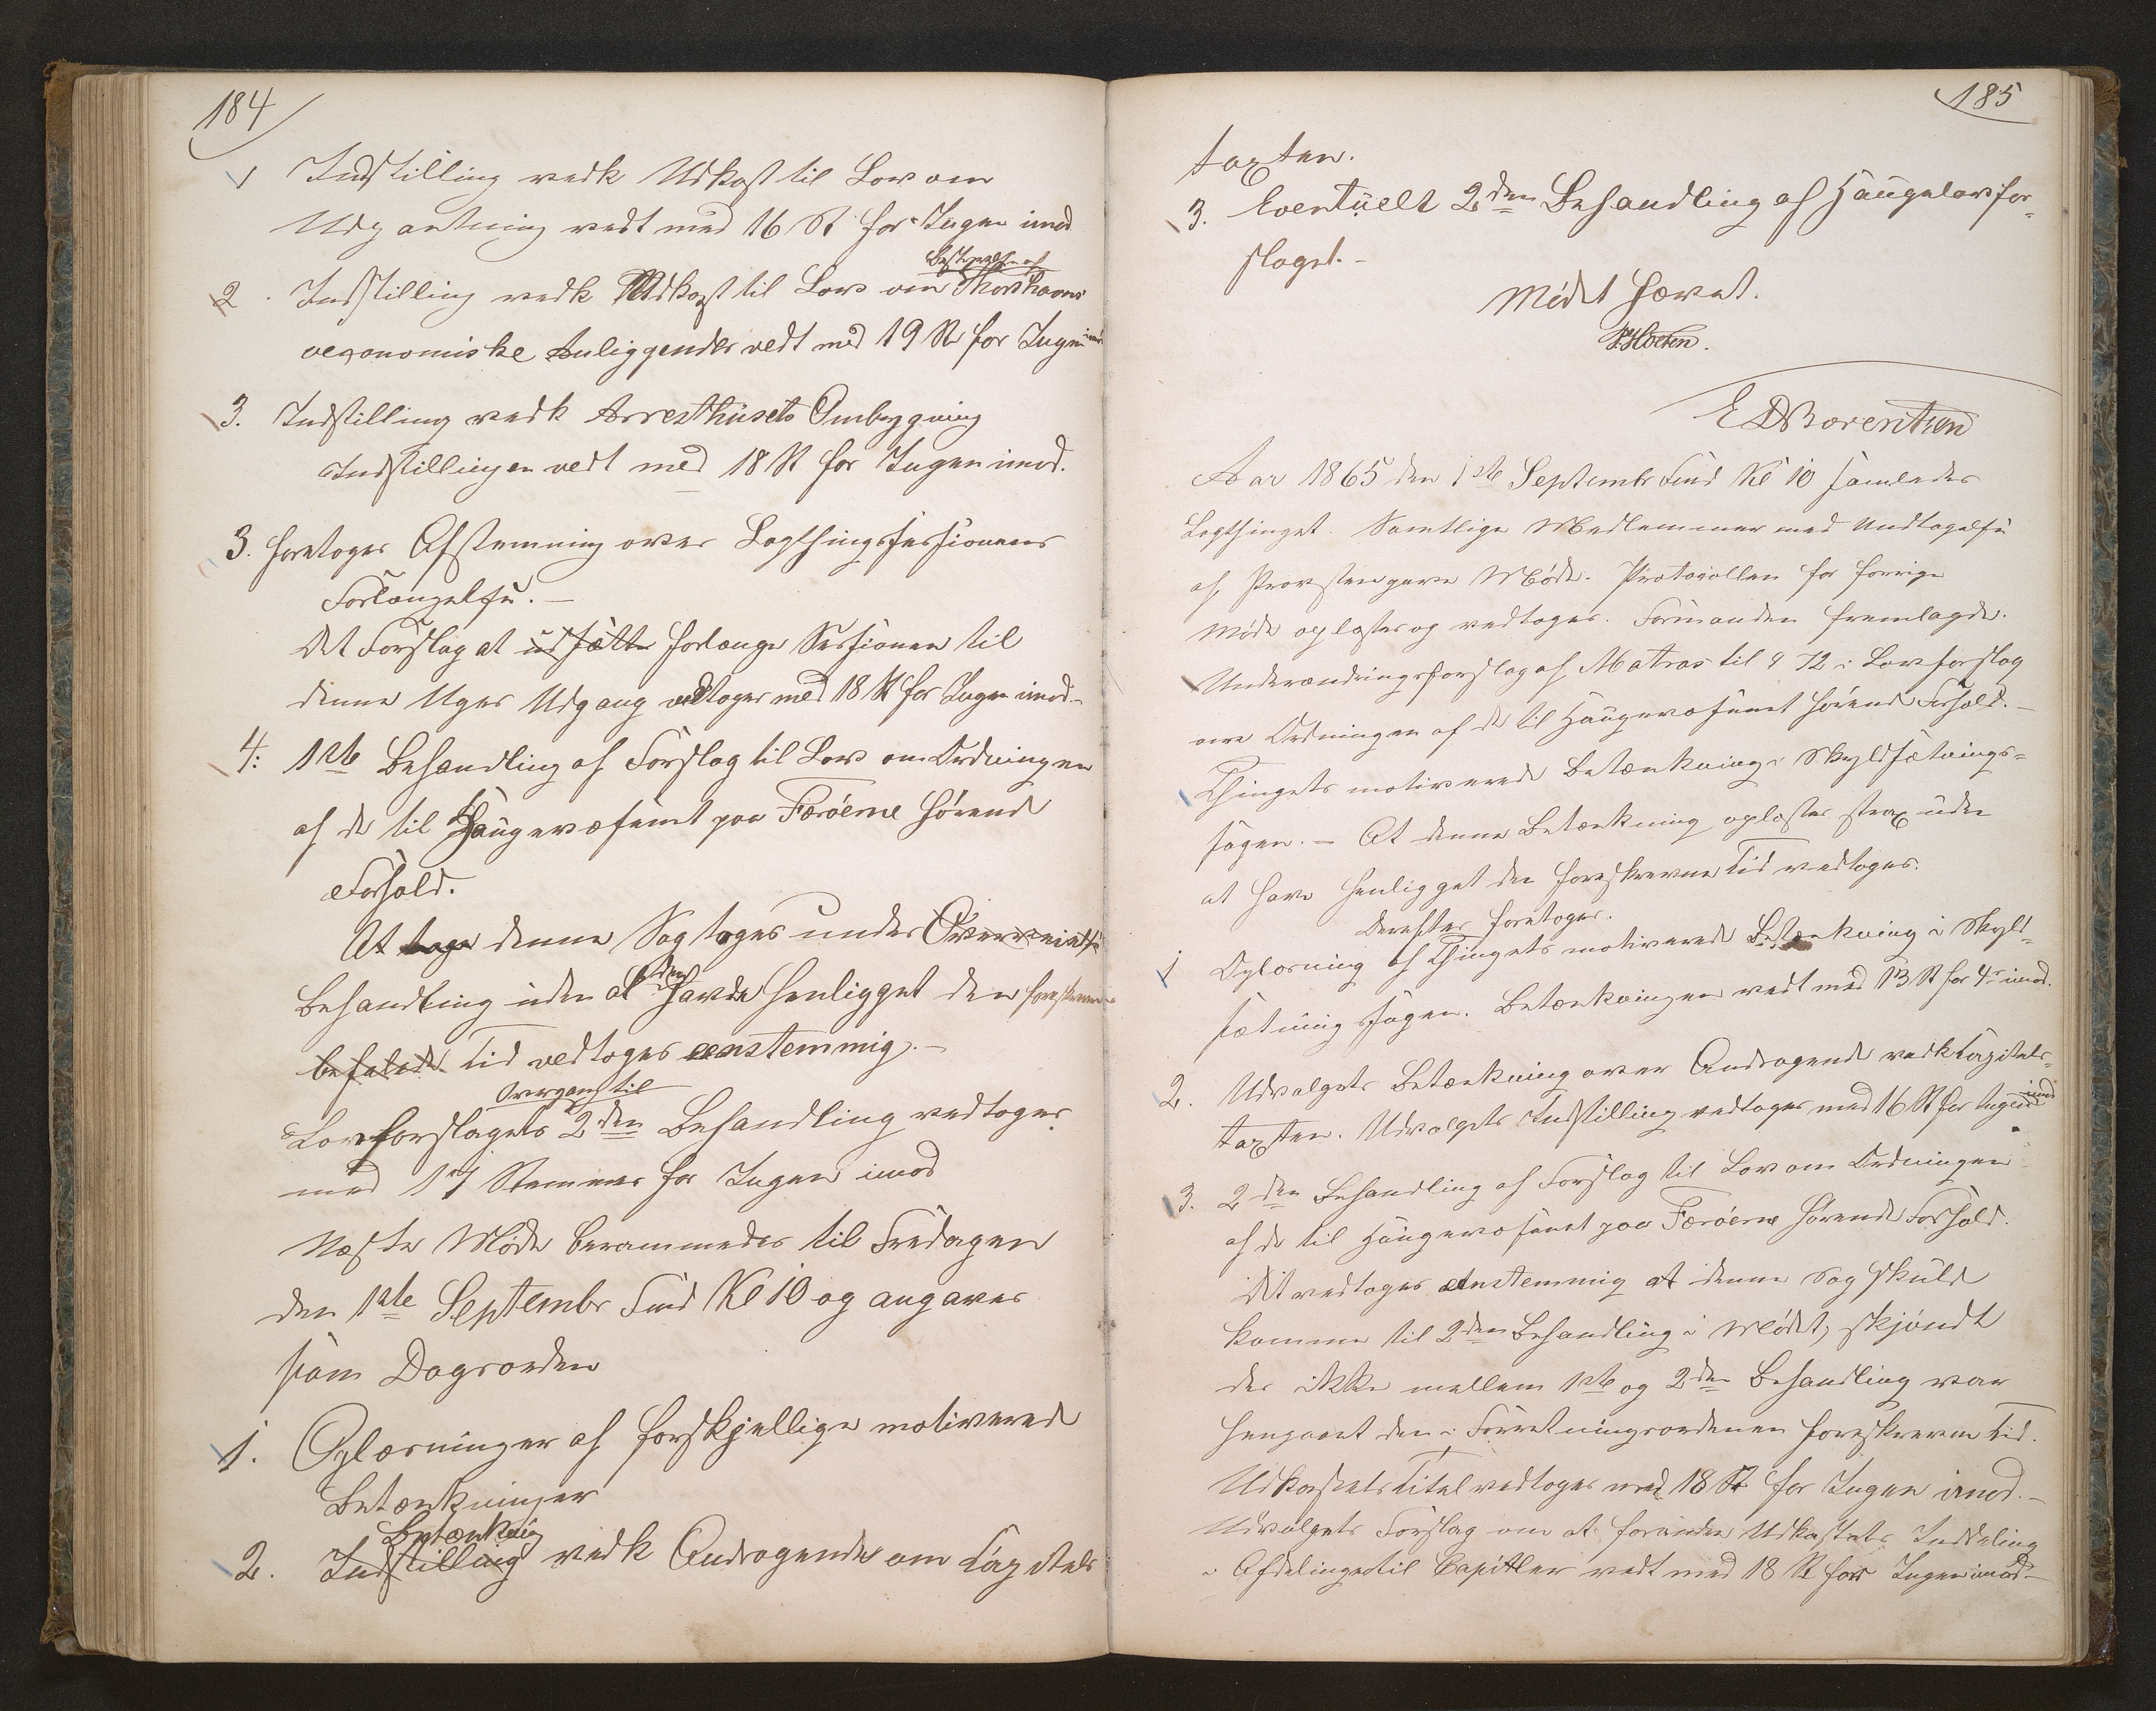 184
1 Indstilling vedk Udkast til Lov om
Udpantning vedt med 16 St for Ingen imod
Bestyrelse af
2. Indstilling vedk Udkast til Lov om Thorshavns
oeconomiske Anliggender vedt med 19 St for Ingen imod
3. Indstilling vedk Arresthusets Ombygning
Indstillingen vedt med 18 St for Ingen imod.
3. Foretoges Afstemning over Lagthingssessionens
Forlængelse. –
Det Forslag at udsætte forlænge Sessionen til
denne Uges Udgang vedtoges med 18 St for Ingen imod –
4: 1ste Behandling af Forslag til Lov om Ordningen
af de til Haugevæsenet paa Færöerne hörende
Forhold.
At tage denne Sag toges under
den
Behandling uden at havde henligget den foreskrevne
befalede Tid vedtoges eenstemmig. –
Overgang til
Lovforslagets 2den Behandling vedtoges
med 17 Stemmer for Ingen imod
Næste Möde berammedes til Fredagen
den 1ste Septembr Fmd Kl 10 og angaves
som Dagsorden
1. Oplæsninger af forskjellige motiverede
Betænkninger
Betænkning
2. Indstilling vedk Andragende om Capitels
185
taxten.
3. Eventuelt 2den Behandling af Haugelovfor=
slaget. –
Mödet hævet.
E Bærentsen
Aar 1865 den 1ste Septembr Fmd Kl 10 samledes
Lagthinget. Samtlige Medlemmer med Undtagelse
af Provsten gave Möde. Protocollen for forrige
Möde oplæstes og vedtoges. Formanden fremlagde.
Underændringsforslag af Matras til § 72 i Lovforslag
om Ordningen af de til Haugevæsenet hörende Forhold. –
Thingets motiverede Betænkning i Skyldsætnings=
sagen. – At denne Betænkning oplæstes strax uden
at have henligget den foreskrevne Tid vedtoges.
Derefter foretoges.
1 Oplæsning af Thingets motiverede Betænkning i Skyld=
sætningssagen. Betænkningen vedt med 13 St for 4 imod.
2. Udvalgets Betænkning over Andragende vedk Capitels=
taxten. Udvalgets Indstilling vedtoges med 16 St for Ingen imod
3. 2den Behandling af Forslag til Lov om Ordningen
af de til Haugevæsenet paa Færöerne hörende Forhold.
Det vedtoges eenstemmig at denne Sag skulde
komme til 2den Behandling i Mödet, skjöndt
der ikke mellem 1ste og 2den Behandling var
hengaaet den i Forretningsordenen foreskrevne Tid.
Udkastets Titel vedtoges med 18 St for Ingen imod. –
Udvalgets Forslag om at forandre Udkastets Inddeling
i Afdelinger til Capitler vedt med 18 St for Ingen imod –